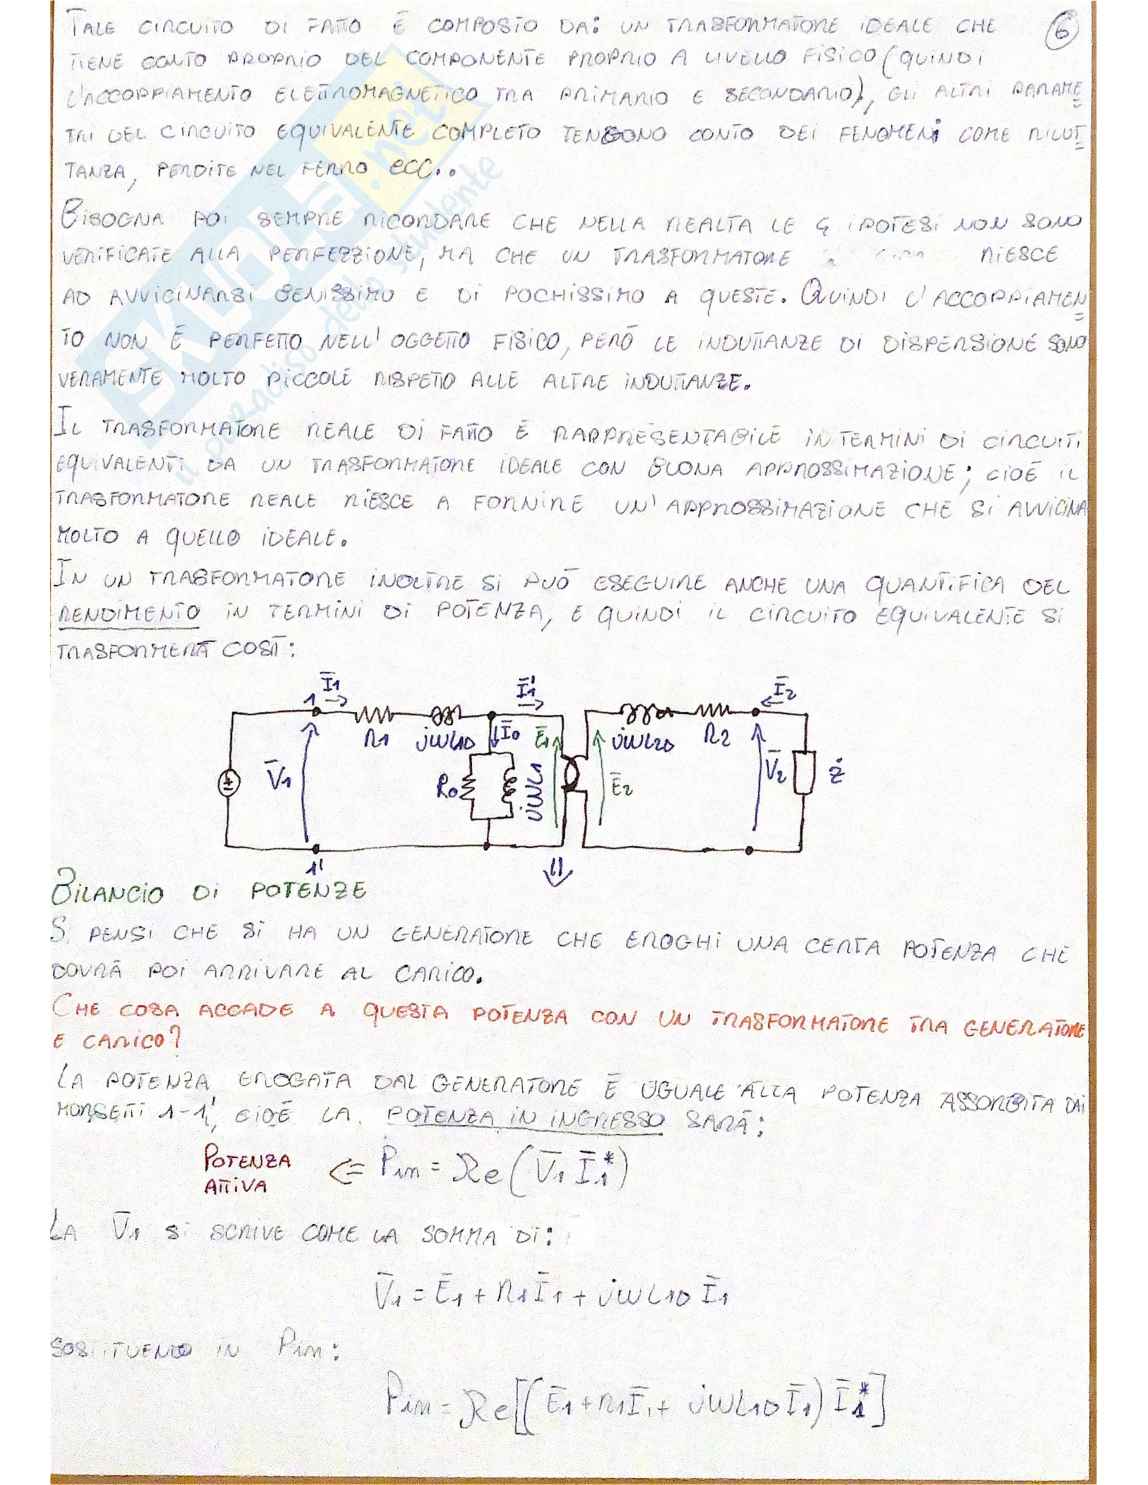 TALE CIRCUITO DI FATTO È COMPOSTO DA: UN TRASFORMATORE IDEALE CHE
6
TIENE CONTO PROPRIO DEL COMPONENTE PROPRIO A LIVELLO FISICO (QUINDI
L'ACCOPPIAMENTO ELETTROMAGNETICO TRA PRIMARIO E SECONDARIO), GLI ALTRI PARAME
TRI DEL CIRCUITO EQUIVALENTE COMPLETO TENGONO CONTO DEI FENOMENI COME RILUT
TANZA, PERDITE NEL FERRO ECC..
BISOGNA POI SEMPRE RICORDARE CHE NELLA REALTÀ LE 4 IPOTESI NON SONO
VERIFICATE ALLA PERFEZZIONE, MA CHE UN TRASFORMATORE RIESCE
AD AVVICINARSI BENISSIMO E DI POCHISSIMO A QUESTE. QUINDI L'ACCOPPIAMEN
TO NON È PERFETTO NELL'OGGETTO FISICO, PERÒ LE INDUTTANZE DI DISPERSIONE SONO
VERAMENTE MOLTO PICCOLE RISPETTO ALLE ALTRE INDUTTANZE.
IL TRASFORMATORE REALE DI FATTO È RAPPRESENTABILE IN TERMINI DI CIRCUITI
EQUIVALENTI DA UN TRASFORMATORE IDEALE CON BUONA APPROSSIMAZIONE; CIOÈ IL
TRASFORMATORE REALE RIESCE A FORNIRE UN'APPROSSIMAZIONE CHE SI AVVICINA
MOLTO A QUELLO IDEALE.
IN UN TRASFORMATORE INOLTRE SI PUÒ ESEGUIRE ANCHE UNA QUANTIFICA DEL
RENDIMENTO IN TERMINI DI POTENZA, E QUINDI IL CIRCUITO EQUIVALENTE SI
TRASFORMERÀ COSÌ:
1 Ī1 Ī1' Ī2
R1 jωL1D Ī0 Ē1 jωL2D R2
V̄1 R0 jωL1 Ē2 V̄2 Ż
1'
BILANCIO DI POTENZE
SI PENSI CHE SI HA UN GENERATORE CHE EROGHI UNA CERTA POTENZA CHE
DOVRÀ POI ARRIVARE AL CARICO.
CHE COSA ACCADE A QUESTA POTENZA CON UN TRASFORMATORE TRA GENERATORE
E CARICO?
LA POTENZA EROGATA DAL GENERATORE È UGUALE ALLA POTENZA ASSORBITA DAI
MORSETTI 1-1', CIOÈ LA POTENZA IN INGRESSO SARÀ:
POTENZA ATTIVA <= Pin = Re(V̄1 Ī1*)
LA V̄1 SI SCRIVE COME LA SOMMA DI:
V̄1 = Ē1 + R1Ī1 + jωL1D Ī1
SOSTITUENDO IN Pin:
Pin = Re[(Ē1 + R1Ī1 + jωL1D Ī1) Ī1*]
SKUOLA.net
il paradiso dello studente